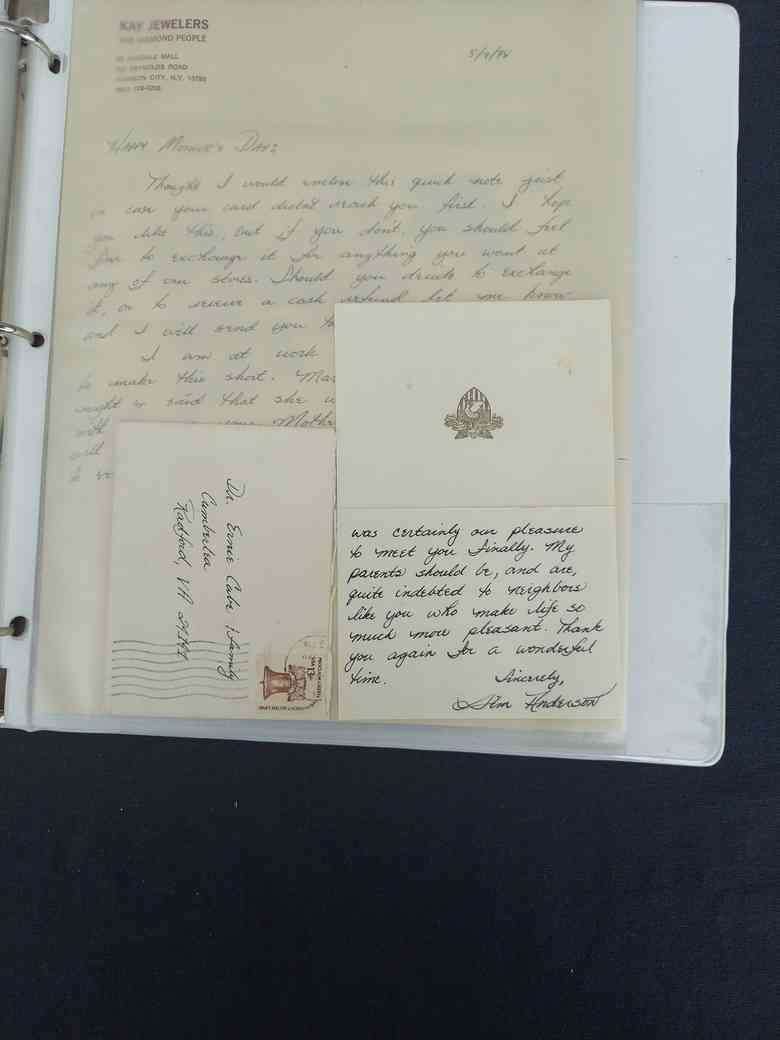 KAY JEWELERS
THE DIAMOND PEOPLE
MALL
REYNOLDS ROAD
JOHNSON CITY, N.Y. 13790
Happy Mother's Day!
Thought I would enclose this quick note just
in case your card didn't reach you first. I hope
you like this, but if you don't, you should feel
free to exchange it for anything you want at
any of our stores. Should you decide to exchange
it, or to receive a cash refund let me know
and I will send you
I am at work
to make this short.
said that she
your
will
Dr. Ernie Cabe & family
Cambertia
Radford, VA
was certainly our pleasure
to meet you finally. My
parents should be, and are,
quite indebted to neighbors
like you who make life so
much more pleasant. Thank
you again for a wonderful
time.
Sincerely,
Jim Anderson